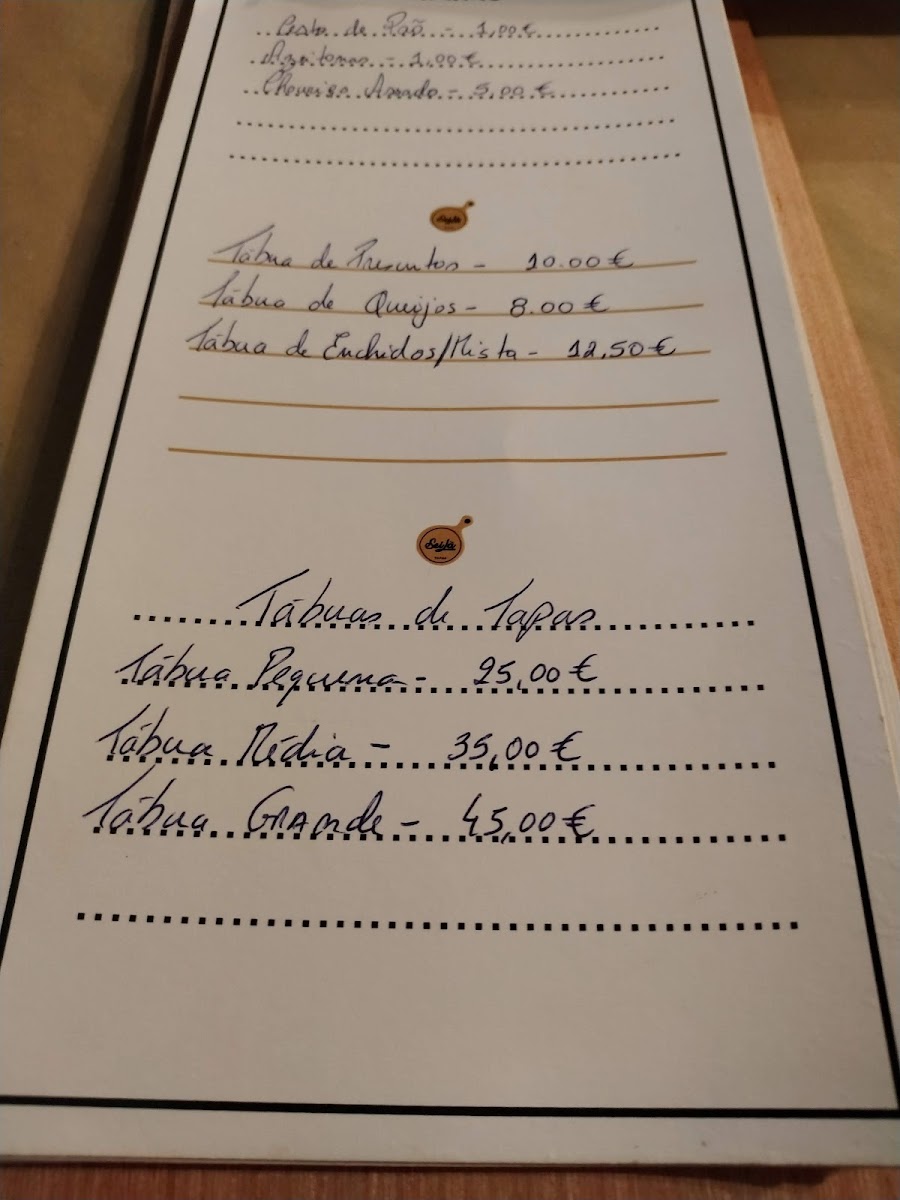 Cesto de Pão - 1,00€
Azeitonas - 1,00€
Chouriço Assado - 5,00€
Tábua de Presuntos - 10.00€
Tábua de Queijos - 8.00€
Tábua de Enchidos/Mista - 12,50€
Tábuas de Tapas
Tábua Pequena - 25,00€
Tábua Média - 35,00€
Tábua Grande - 45,00€